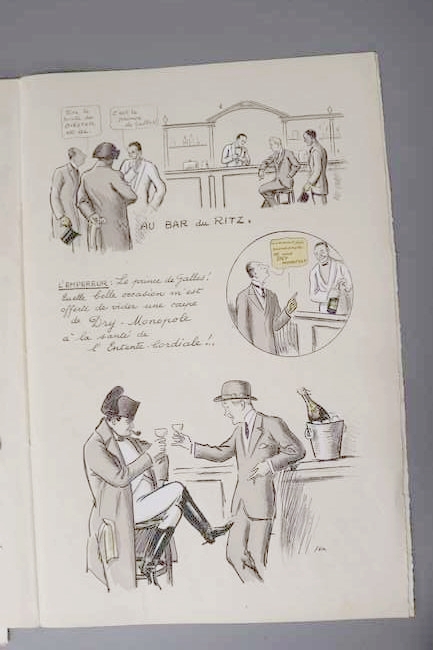 C'est le
prince
de Galles!
AU BAR du RITZ.
L'EMPEREUR: Le prince de Galles!
Quelle belle occasion m'est
offerte de vider une coupe
de Dry-Monopole
à la santé de
l'Entente Cordiale!..
SEM